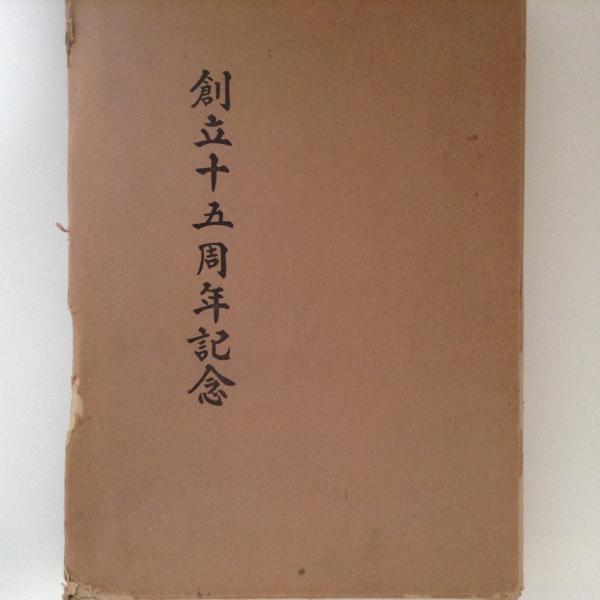 創立十五周年記念